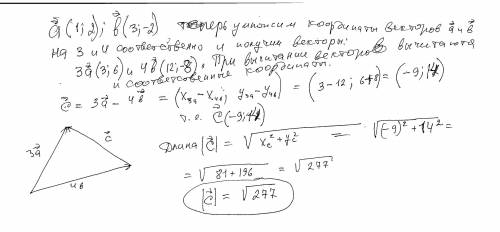 a⃗ (1; 2); b⃗ (3; -2) теперь умножим координаты векторов a⃗ и b⃗
на 3 и 4 соответственно и получим векторы:
3a⃗ (3; 6) и 4b⃗ (12; -8). При вычитании векторов вычитаются
и соответственные координаты.
c⃗ = 3a⃗ - 4b⃗ = (x3a - x4b; y3a - y4b) = (3-12; 6+8) = (-9; 14)
т.е. c⃗ (-9; 14)
3a⃗
c⃗
4b
Длина |c⃗| = √xc² + yc² = √(-9)² + 14² =
= √81 + 196 = √277
|c⃗| = √277